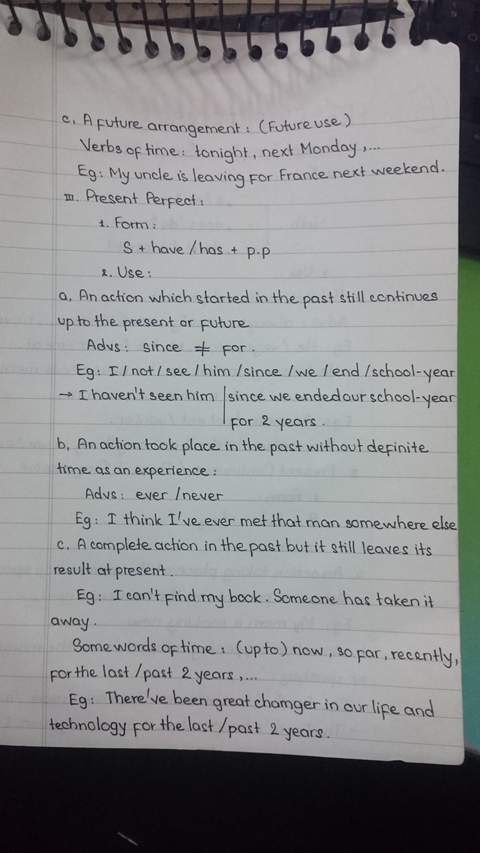 c. A future arrangement: (Future use)
Verbs of time: tonight, next Monday,...
Eg: My uncle is leaving for France next weekend.
III. Present Perfect:
1. Form:
S + have / has + p.p
2. Use:
a. An action which started in the past still continues
up to the present or future
Advs: since ≠ for.
Eg: I / not / see / him / since / we / end / school-year
→ I haven't seen him | since we ended our school-year
for 2 years.
b. An action took place in the past without definite
time as an experience:
Advs: ever / never
Eg: I think I've ever met that man somewhere else
c. A complete action in the past but it still leaves its
result at present.
Eg: I can't find my book. Someone has taken it
away.
Some words of time: (up to) now, so far, recently,
for the last / past 2 years,...
Eg: There've been great changer in our life and
technology for the last / past 2 years.